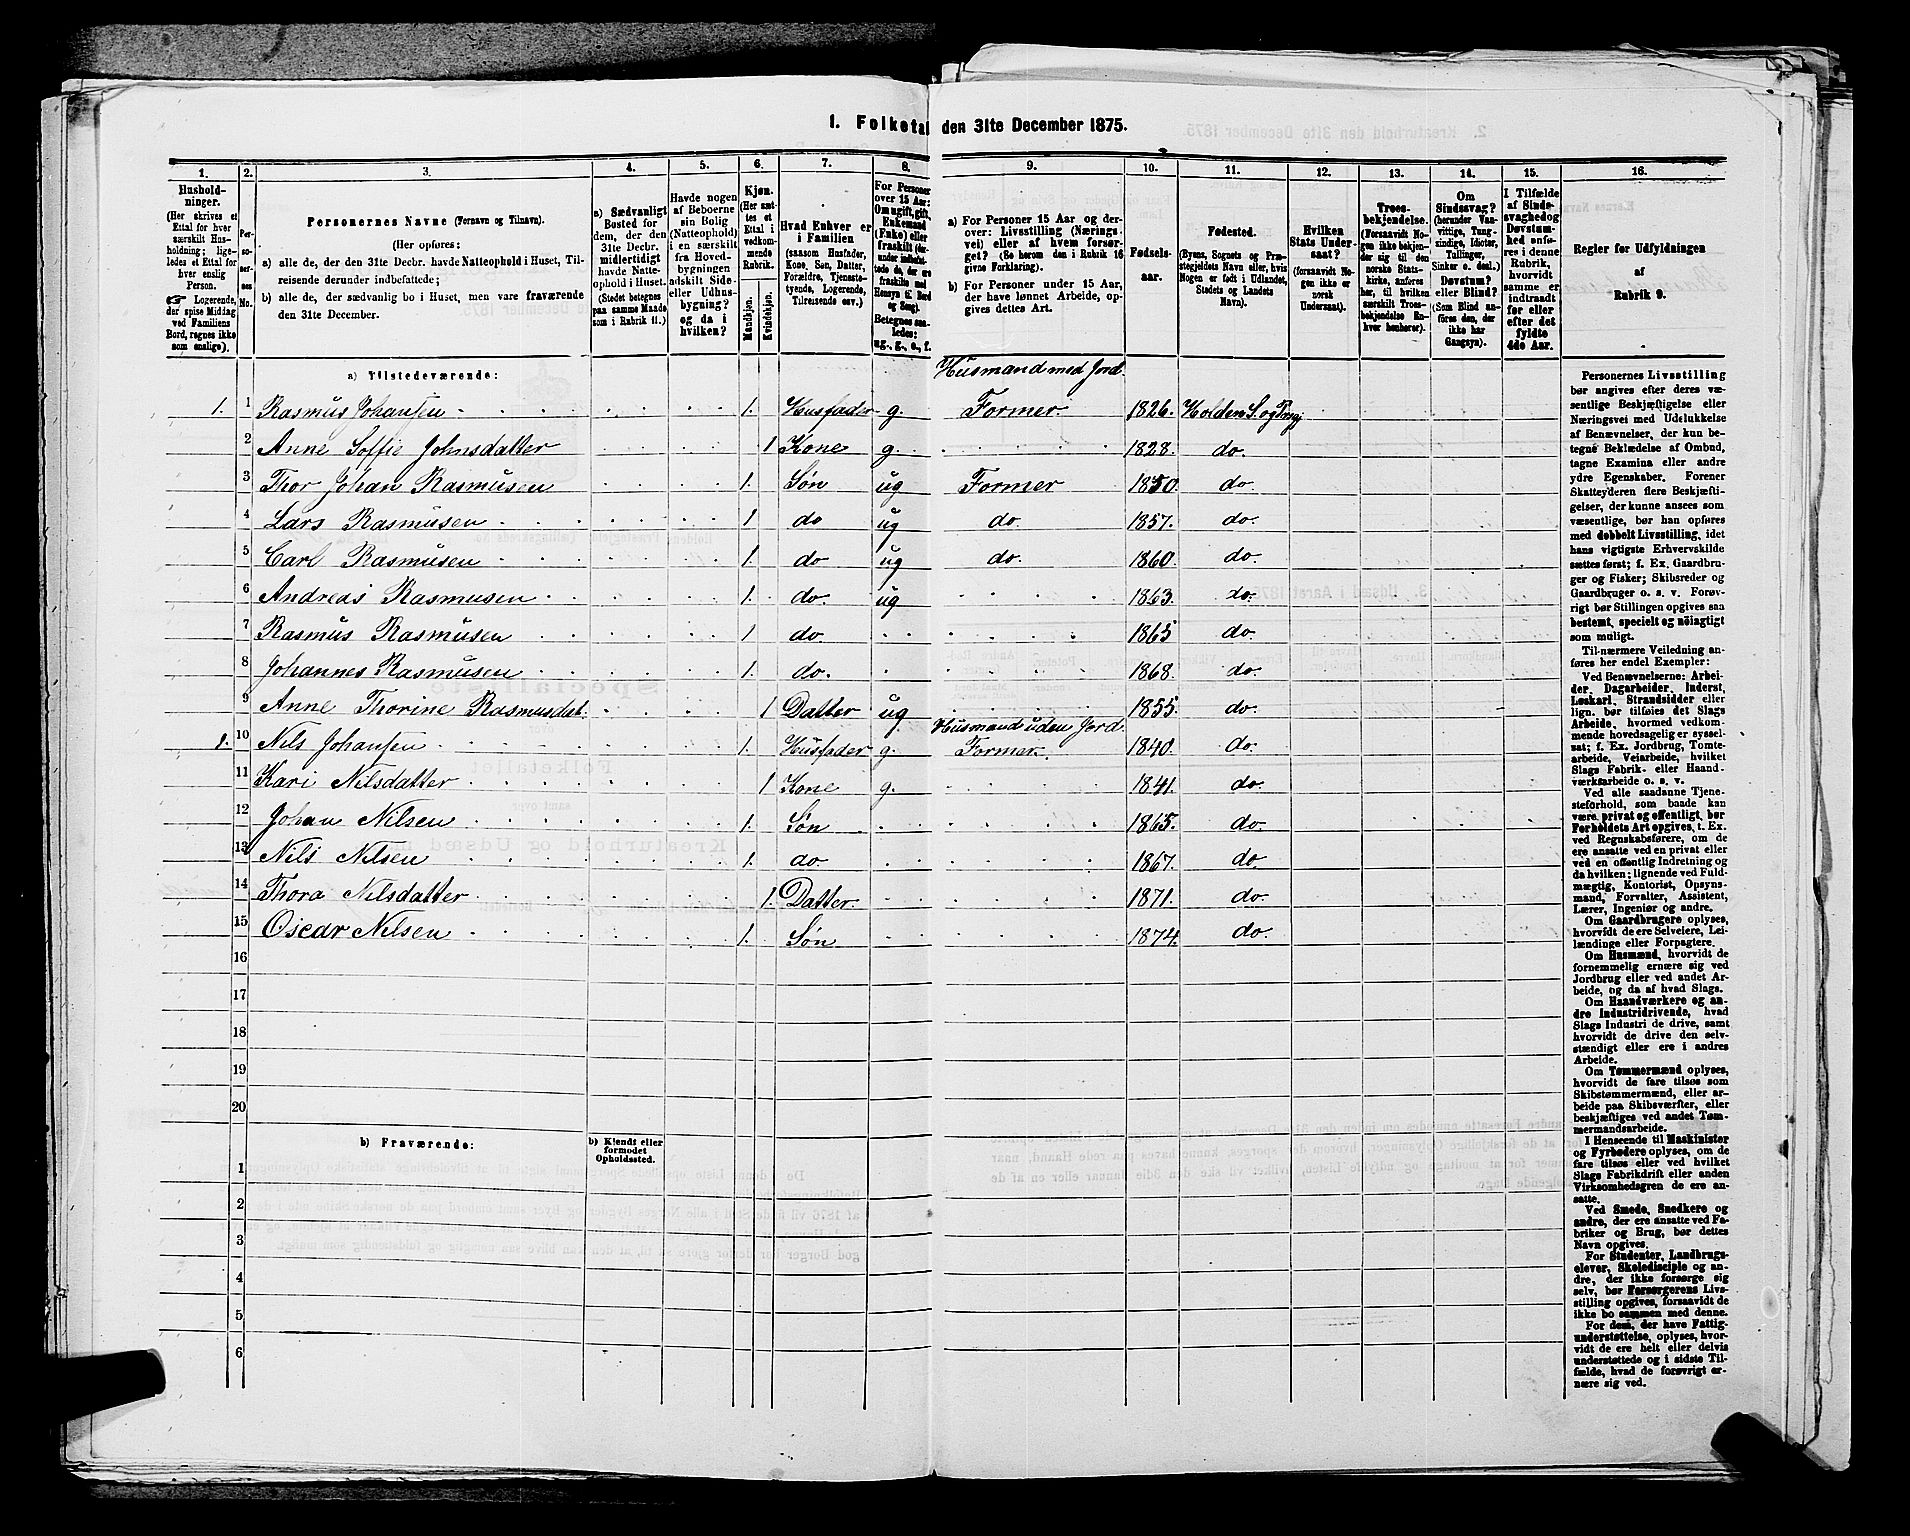 1. Folketal den 31te December 1875.
1. 2. 3. 4. 5. 6. 7. 8. 9. 10. 11. 12. 13. 14. 15. 16.
Hushold-
ninger.
(Her skrives et
Ettal for hver
særskilt Hus-
holdning; lige-
ledes et Ettal for
hver enslig
Person.
☞ Logerende,
der spise Middag
ved Familiens
Bord, regnes ikke
som enslige).
Per-
so-
ner-
nes
No.
Personernes Navne (Fornavn og Tilnavn).
(Her opføres:
a) alle de, der den 31te Decbr. havde Natteophold i Huset, Til-
reisende derunder indbefattede;
b) alle de, der sædvanlig bo i Huset, men vare fraværende
den 31te December.
a) Sædvanligt
Bosted for
dem, der den
31te Decbr.
midlertidigt
havde Natte-
ophold i Huset.
(Stedet betegnes
paa samme Maade
som i Rubrik 11.)
Havde nogen
af Beboerne
sin Bolig
(Natteophold)
i en særskilt
fra Hoved-
bygningen
adskilt Side-
eller Udhus-
bygning?
og da i
hvilken?
Kjøn.
(Her sæt-
tes et
Ettal i
vedkom-
mende
Rubrik.
Mandkjøn.
Kvindekjøn.
Hvad Enhver er
i Familien
(saasom Husfader,
Kone, Søn, Datter,
Forældre, Tjeneste-
tyende, Logerende,
Tilreisende osv.)
For Personer
over 15 Aar:
Om ugift, gift,
Enkemand
(Enke) eller
fraskilt
Betegnes saa-
ledes:
ug., g., e., f.
a) For Personer 15 Aar og der-
over: Livsstilling (Nærings-
vei) eller af hvem forsør-
get? (Se herom den i Rubrik 16
givne Forklaring).
b) For Personer under 15 Aar,
der have lønnet Arbeide, op-
gives dettes Art.
Fødsels-
aar.
Fødested.
(Byens, Sognets og Præ-
stegjeldets Navn eller, hvis
Nogen er født i Udlandet,
Stedets og Landets
Navn).
Hvilken
Stats Under-
saat?
(forsaavidt No-
gen ikke er
norsk
Undersaat).
Troes-
bekjendelse.
(Forsaavidt No-
gen ikke bekjen-
der sig til den
norske Stats-
kirke, anføres
her, til hvilken
særskilt Troes-
bekjendelse En-
hver henhører).
Om
Sindssvag?
(herunder Van-
vittige, Tung-
sindige, Idioter,
Tullinger,
Sinker o. desl.)
Døvstum?
eller Blind?
(Som Blind an-
føres den, der
ikke har
Gangsyn).
I Tilfælde
af Sinds-
svaghed og
Døvstum-
hed anfø-
res i denne
Rubrik,
hvorvidt
samme er
indtraadt
før eller
efter det
fyldte
4de Aar.
Regler for Udfyldningen
af
Rubrik 9.
a) Tilstedeværende:
Husmand med Jord.
1. 1 Rasmus Johansen 1. Husfader g. Former 1826. Holden S. og Prgj
2 Anne Soffie Johnsdatter 1 Kone g. 1828. do.
3 Thor Johan Rasmusen 1. Søn ug Former 1850. do.
4 Lars Rasmusen 1 do ug do. 1857. do.
5 Carl Rasmusen 1. do ug do. 1860. do.
6 Andreas Rasmusen 1. do. ug 1863. do.
7 Rasmus Rasmusen 1 do. 1865 do.
8 Johannes Rasmusen 1. do. 1868. do.
9 Anne Thorine Rasmusdat. 1 Datter ug. 1855. do.
Husmand uden Jord.
1. 10 Nils Johansen 1. Husfader g. Former. 1840. do.
11 Kari Nilsdatter 1 Kone g. 1841. do.
12 Johan Nilsen 1. Søn 1865. do.
13 Nils Nilsen 1. do 1867. do.
14 Thora Nilsdatter 1. Datter. 1871. do.
15 Oscar Nilsen 1. Søn 1874. do.
16
17
18
19
20
b) Fraværende:
b) Kjendt eller
formodet
Opholdssted.
1
2
3
4
5
6
Personernes Livsstilling
bør angives efter deres væ-
sentlige Beskjæftigelse eller
Næringsvei med Udelukkelse
af Benævnelser, der kun be-
tegne Beklædelse af Ombud,
tagne Examina eller andre
ydre Egenskaber. Forener
Skatteyderen flere Beskjæfti-
gelser, der kunne ansees som
væsentlige, bør han opføres
med dobbelt Livsstilling, idet
hans vigtigste Erhvervskilde
sættes først; f. Ex. Gaardbru-
ger og Fisker; Skibsreder og
Gaardbruger o. s. v. Forøv-
rigt bør Stillingen opgives saa
bestemt, specielt og nöiagtigt
som muligt.
Til nærmere Veiledning an-
føres her endel Exempler:
Ved Benævnelserne: Arbei-
der, Dagarbeider, Inderst,
Løskarl, Strandsidder eller
lign. bør tilføies det Slags
Arbeide, hvormed vedkom-
mende hovedsagelig er syssel-
sat; f. Ex. Jordbrug, Tomte-
arbeide, Veiarbeide, hvilket
Slags Fabrik- eller Haand-
værksarbeide o. s. v.
Ved alle saadanne Tjene-
steforhold, som baade kan
være privat og offentligt, bør
Forholdets Art opgives, t. Ex.
ved Regnskabsførere, om de
ere ansatte ved en privat eller
ved en offentlig Indretning og
da hvilken; lignende ved Fuld-
mægtig, Kontorist, Opsyns-
mand, Forvalter, Assistent,
Lærer, Ingeniør og andre.
Om Gaardbrugere oplyses,
hvorvidt de ere Selveiere, Lei-
lændinge eller Forpagtere.
Om Husmænd, hvorvidt de
fornemmelig ernære sig ved
Jordbrug eller ved andet Ar-
beide, og da af hvad Slags.
Om Haandværkere og an-
dre Industridrivende, hvad
Slags Industri de drive, samt
hvorvidt de drive den selv-
stændigt eller ere i andres
Arbeide.
Om Tømmermænd oplyses,
hvorvidt de fare tilsøs som
Skibstømmermænd, eller ar-
beide paa Skibsværfter, eller
beskjæftiges ved andet Tøm-
mermandsarbeide.
I Henseende til Maskinister
og Fyrbødere oplyses, om de
fare tilsøs eller ved hvilket
Slags Fabrikdrift eller anden
Virksomhedsgren de ere an-
satte.
Ved Smede, Snedkere og
andre, der ere ansatte ved Fa-
briker og Brug, bør dettes
Navn opgives.
For Studenter, Landbrugs-
elever, Skoledisciple og an-
dre, der ikke forsørge sig
selv, bør Forsørgerens Livs-
stilling opgives, forsaavidt de
ikke bo sammen med denne.
For dem, der have Fattig-
understøttelse, oplyses, hvor-
vidt de ere helt eller delvis
understøttede og i sidste Til-
fælde, hvad de forøvrigt er-
nære sig ved.